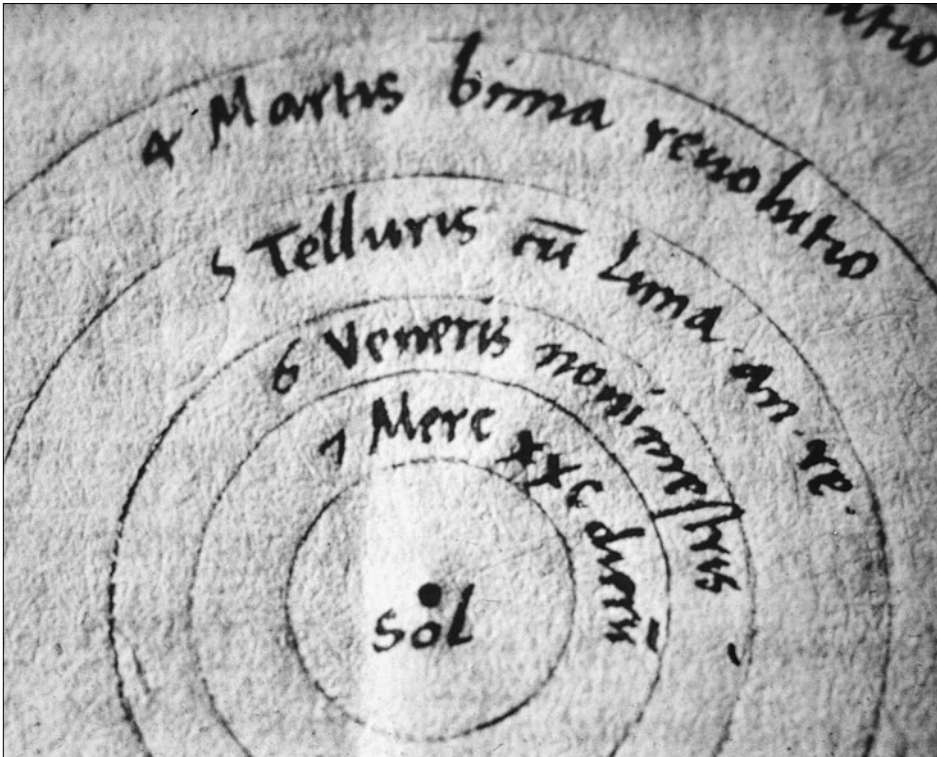 4 Martis bima revolutio
5 Telluris cū Luna an. re.
6 Veneris nonimestris
7 Merc xxc dierū
Sol